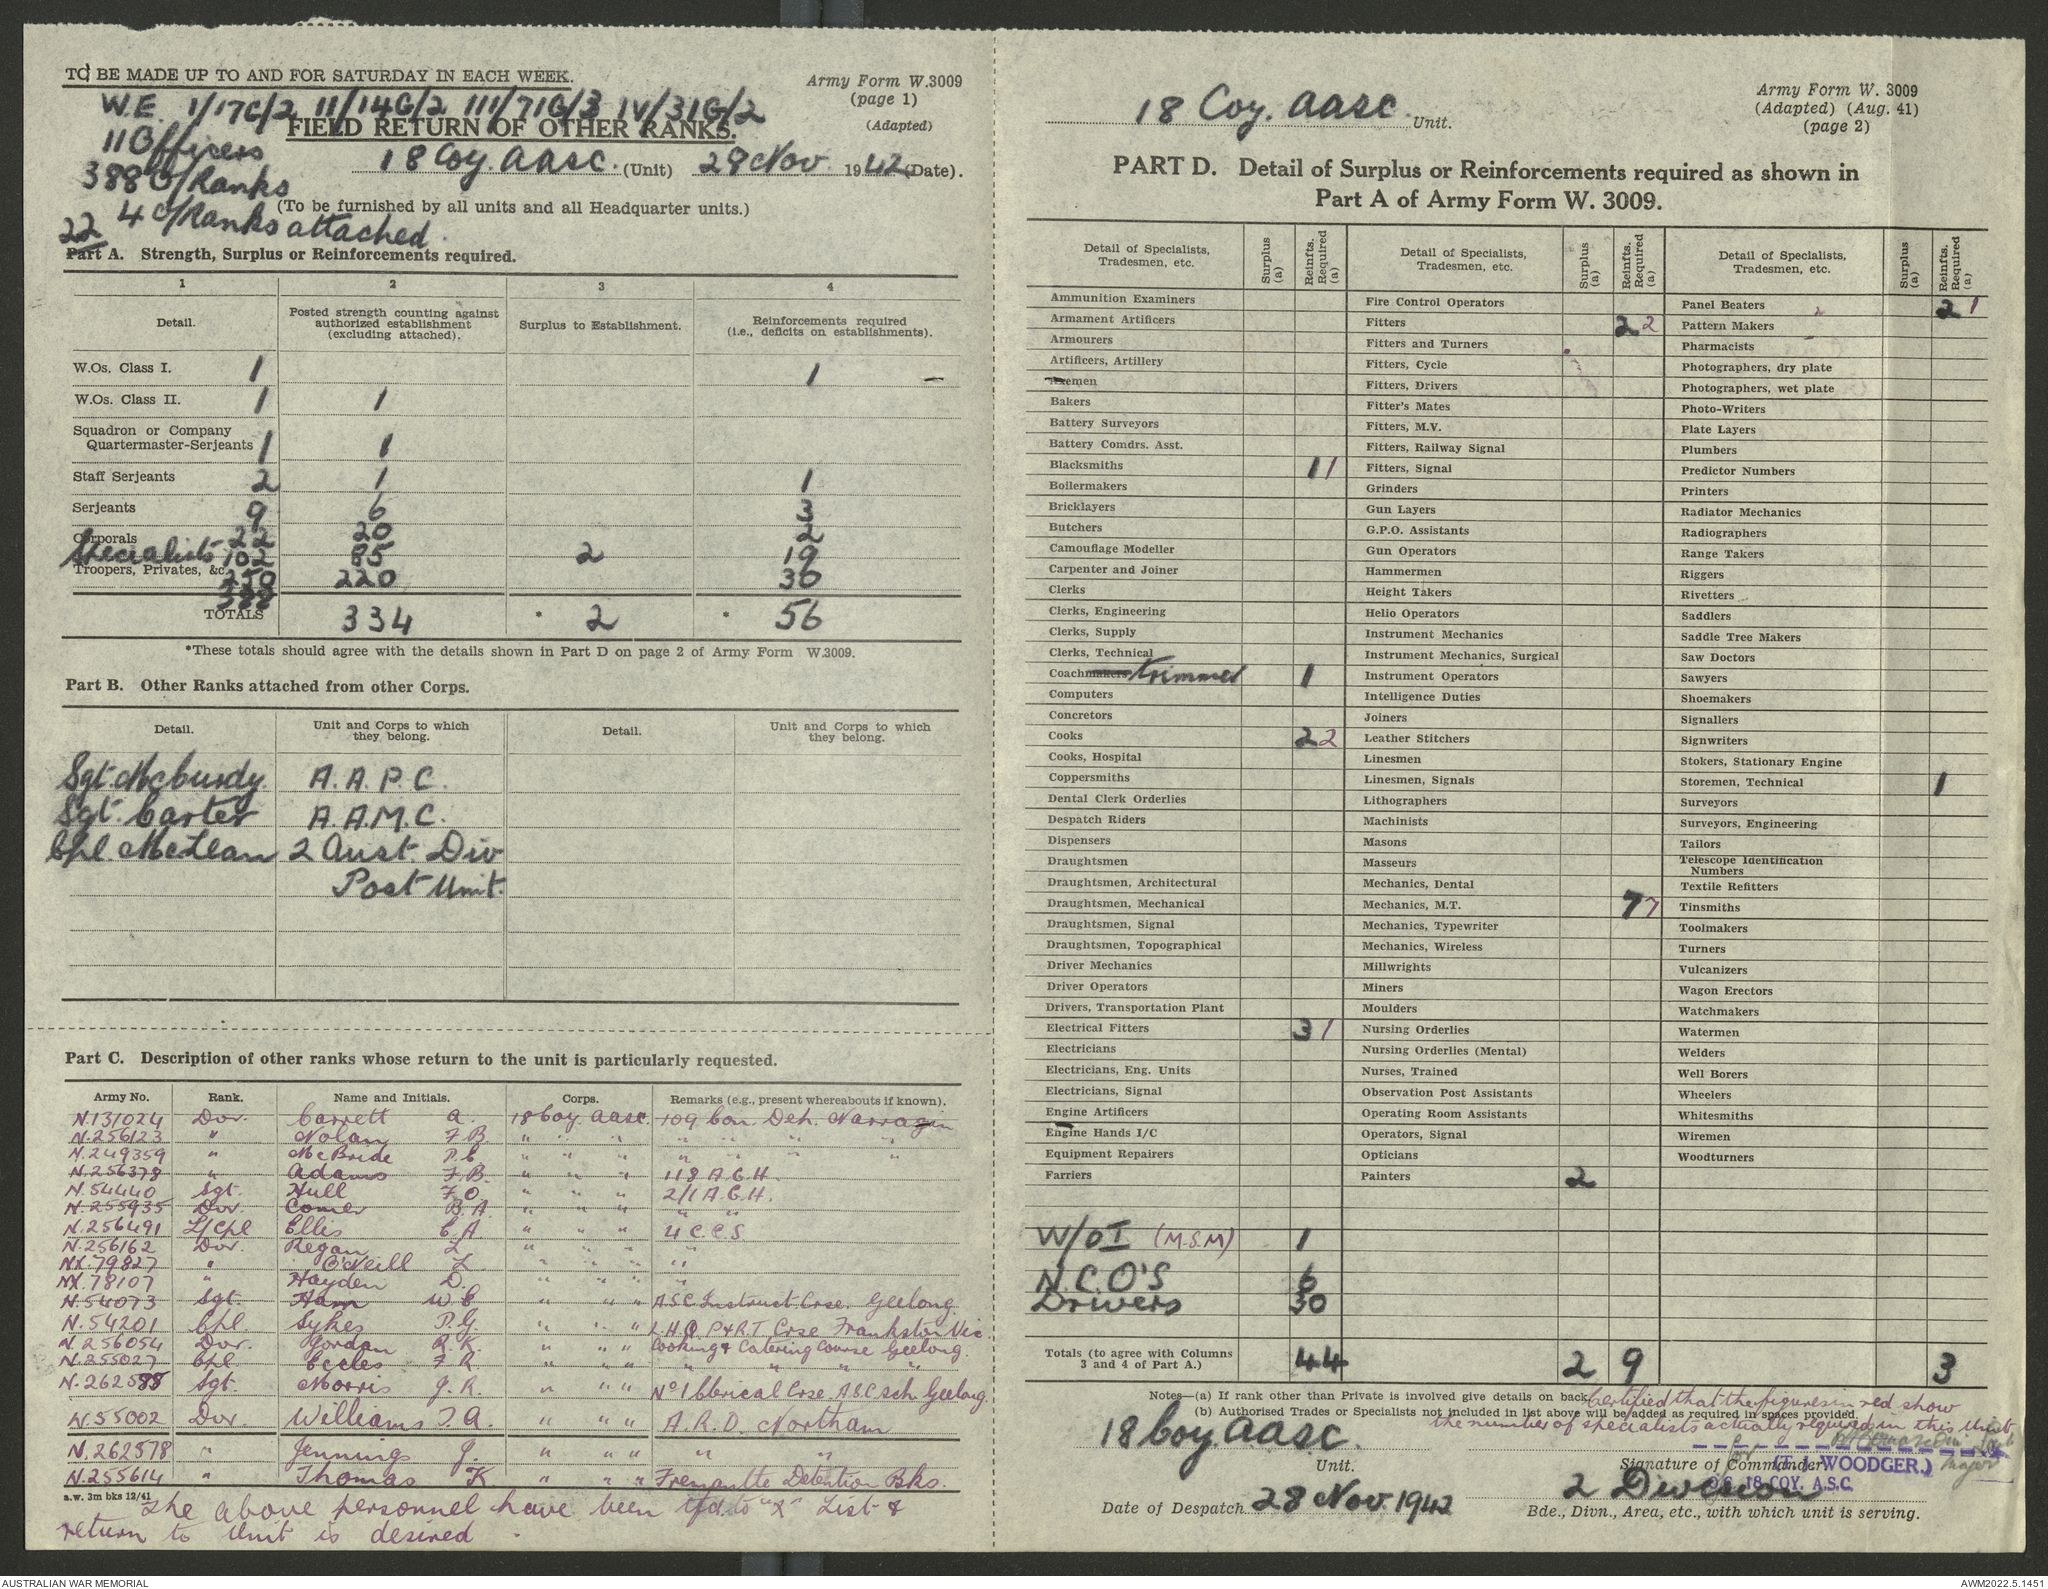 TO BE MADE UP TO AND FOR SATURDAY IN EACH WEEK.
Army Form W.3009
(page 1)
(Adapted)
W.E. I/17C/2 II/14G/2 III/71G/3 IV/31G/2
FIELD RETURN OF OTHER RANKS.
11 Officers
18 Coy AASC. (Unit) 28 Nov 1942 (Date).
388 O/Ranks
(To be furnished by all units and all Headquarter units.)
4 O/Ranks attached
22
Part A. Strength, Surplus or Reinforcements required.
1 2 3 4
Detail. Posted strength counting against authorized establishment (excluding attached). Surplus to Establishment. Reinforcements required (i.e., deficits on establishments).
W.Os. Class I. 1 1 —
W.Os. Class II. 1 1
Squadron or Company
Quartermaster-Serjeants 1 1
Staff Serjeants 2 1 1
Serjeants 9 6 3
Corporals 22 20 2
Specialists 102 85 2 19
Troopers, Privates, &c. 250 220 30
388
TOTALS 334 * 2 * 56
*These totals should agree with the details shown in Part D on page 2 of Army Form W.3009.
Part B. Other Ranks attached from other Corps.
Detail. Unit and Corps to which they belong. Detail. Unit and Corps to which they belong.
Sgt. McCurdy A.A.P.C.
Sgt. Carter A.A.M.C.
Cpl. McLean 2 Aust. Div
Post Unit.
Part C. Description of other ranks whose return to the unit is particularly requested.
Army No. Rank. Name and Initials. Corps. Remarks (e.g., present whereabouts if known).
N.131024 Dvr. Carrett A. 18 Coy AASC. 109 Con. Dep. Narrogin
N.256123 " Nolan F.B. " " " " " " "
N.249359 " McBride P.C. " " " " " " "
N.256378 " Adams F.B. " " " 118 A.G.H.
N.54440 Sgt. Hull F.O. " " " 2/1 A.G.H.
N.255935 Dvr. Comer B.A. " " " " "
N.256491 L/Cpl Ellis C.A. " " " 4 C.C.S
N.256162 Dvr. Regan L. " " " "
NX.79827 " O'Neill L " " " "
NX.78107 " Hayden D. " " " "
N.54073 Sgt. Ham W.C. " " " A.S.C Instruct. Crse. Geelong
N.54201 Cpl. Sykes P.G. " " " L.H.Q P&RT Crse Frankston Vic.
N.256054 Dvr. Gordon R.K. " " " Cooking & Catering Course Geelong.
N.255027 Cpl. Eccles F.R. " " " " " " "
N.262588 Sgt. Morris J.R. " " " No 1 Clerical Crse. A.S.C Sch. Geelong.
N.55002 Dvr. Williams T.A. " " " A.R.D. Northam
N.262578 " Jennings J. " " " " "
N.255614 " Thomas K. " " " Fremantle Detention Bks.
a.w. 3m bks 12/41
The above personnel have been tfd. to "X" List &
return to Unit is desired.
18 Coy. AASC. Unit.
Army Form W. 3009
(Adapted) (Aug. 41)
(page 2)
PART D. Detail of Surplus or Reinforcements required as shown in
Part A of Army Form W. 3009.
Detail of Specialists, Tradesmen, etc. Surplus (a) Reinfts. Required (a)
Ammunition Examiners
Armament Artificers
Armourers
Artificers, Artillery
Axemen
Bakers
Battery Surveyors
Battery Comdrs. Asst.
Blacksmiths 1 1
Boilermakers
Bricklayers
Butchers
Camouflage Modeller
Carpenter and Joiner
Clerks
Clerks, Engineering
Clerks, Supply
Clerks, Technical
Coachmakers trimmer 1
Computers
Concretors
Cooks 2 2
Cooks, Hospital
Coppersmiths
Dental Clerk Orderlies
Despatch Riders
Dispensers
Draughtsmen
Draughtsmen, Architectural
Draughtsmen, Mechanical
Draughtsmen, Signal
Draughtsmen, Topographical
Driver Mechanics
Driver Operators
Drivers, Transportation Plant
Electrical Fitters 3 1
Electricians
Electricians, Eng. Units
Electricians, Signal
Engine Artificers
Engine Hands I/C
Equipment Repairers
Farriers
W/O I (M.S.M) 1
N.C.O'S 6
Drivers 30
Totals (to agree with Columns 3 and 4 of Part A.) 44
Detail of Specialists, Tradesmen, etc. Surplus (a) Reinfts. Required (a)
Fire Control Operators
Fitters 2 2
Fitters and Turners
Fitters, Cycle
Fitters, Drivers
Fitter's Mates
Fitters, M.V.
Fitters, Railway Signal
Fitters, Signal
Grinders
Gun Layers
G.P.O. Assistants
Gun Operators
Hammermen
Height Takers
Helio Operators
Instrument Mechanics
Instrument Mechanics, Surgical
Instrument Operators
Intelligence Duties
Joiners
Leather Stitchers
Linesmen
Linesmen, Signals
Lithographers
Machinists
Masons
Masseurs
Mechanics, Dental
Mechanics, M.T. 7 7
Mechanics, Typewriter
Mechanics, Wireless
Millwrights
Miners
Moulders
Nursing Orderlies
Nursing Orderlies (Mental)
Nurses, Trained
Observation Post Assistants
Operating Room Assistants
Operators, Signal
Opticians
Painters 2
2 9
Detail of Specialists, Tradesmen, etc. Surplus (a) Reinfts. Required (a)
Panel Beaters 2 1
Pattern Makers
Pharmacists
Photographers, dry plate
Photographers, wet plate
Photo-Writers
Plate Layers
Plumbers
Predictor Numbers
Printers
Radiator Mechanics
Radiographers
Range Takers
Riggers
Rivetters
Saddlers
Saddle Tree Makers
Saw Doctors
Sawyers
Shoemakers
Signallers
Signwriters
Stokers, Stationary Engine
Storemen, Technical 1
Surveyors
Surveyors, Engineering
Tailors
Telescope Identification
Numbers
Textile Refitters
Tinsmiths
Toolmakers
Turners
Vulcanizers
Wagon Erectors
Watchmakers
Watermen
Welders
Well Borers
Wheelers
Whitesmiths
Wiremen
Woodturners
3
Notes—(a) If rank other than Private is involved give details on back.
(b) Authorised Trades or Specialists not included in list above will be added as required in spaces provided.
Certified that the figures in red show
the number of specialists actually required in this Unit
18 Coy. AASC.
Unit.
for
Major
Signature of Commander
(T.J. WOODGER.)
O.C. 18 COY. A.S.C.
Date of Despatch 28 Nov. 1942
2 Division
Bde., Divn., Area, etc., with which unit is serving.
AUSTRALIAN WAR MEMORIAL
AWM2022.5.1451